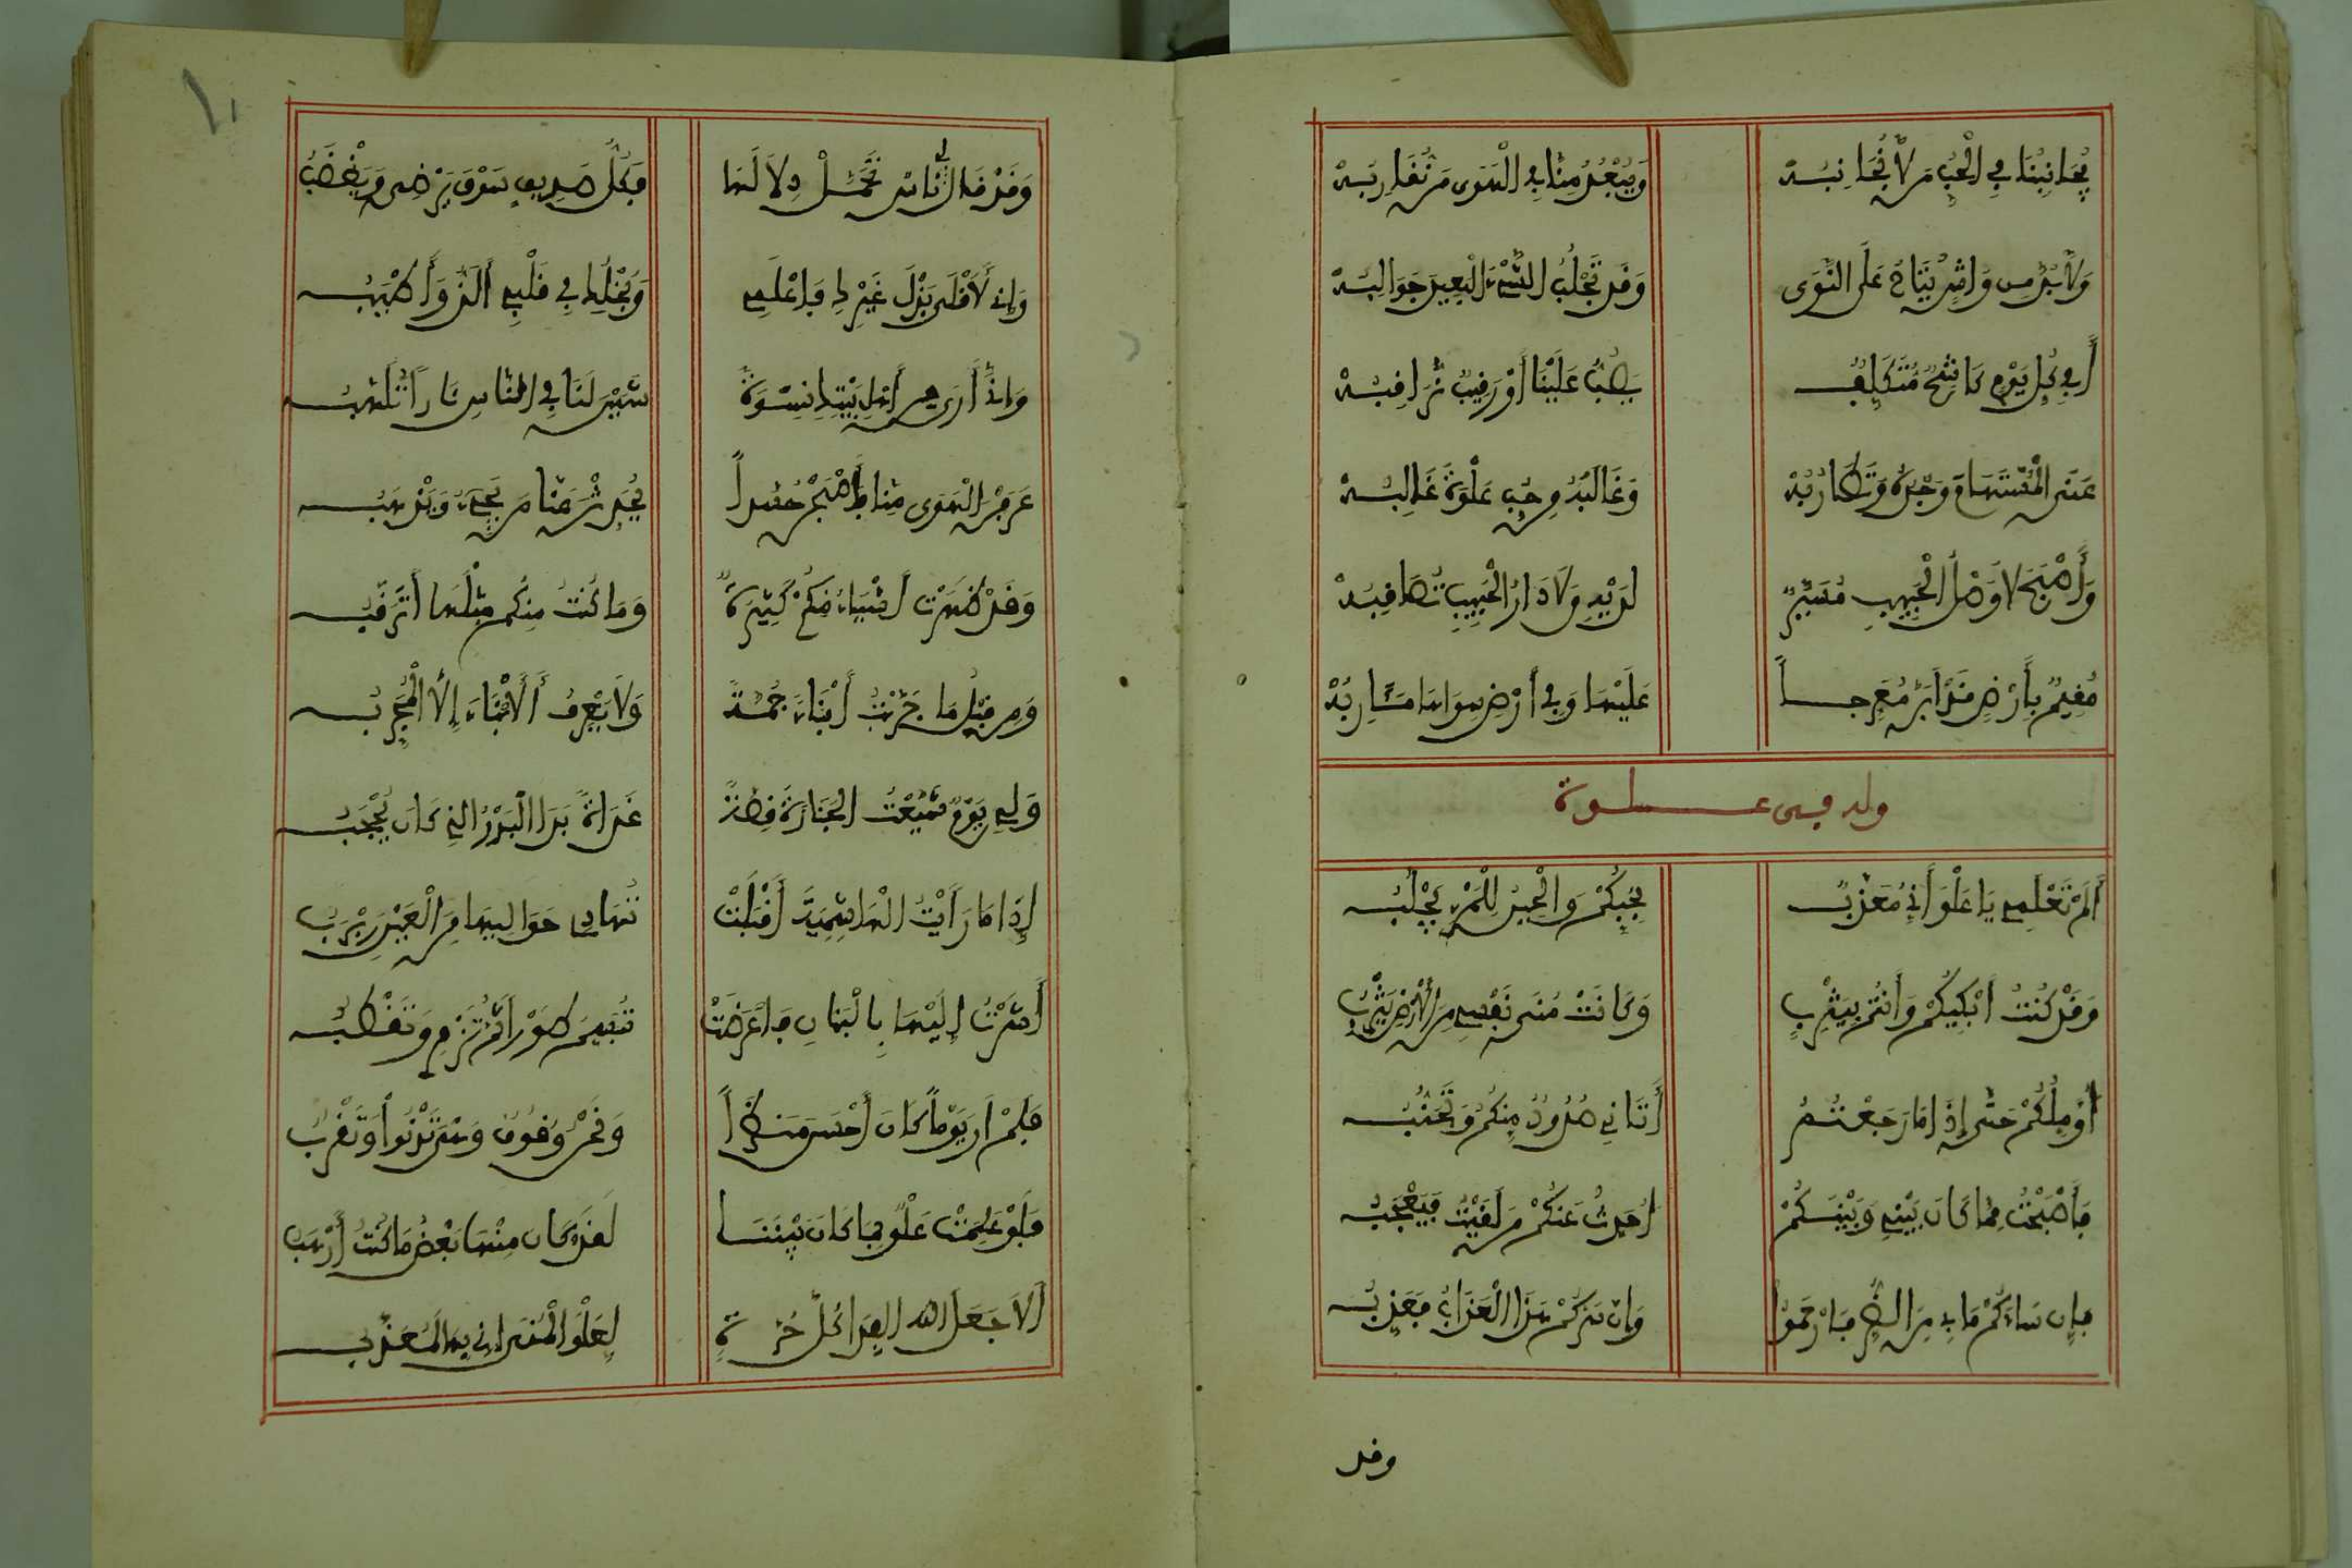 يُجَانِبُنَا فِي الْحُبِّ مَن لَّا نُجَانِبُهْ وَيُبْعِدُ مِنَّا فِي الْهَوَى مَن نُقَارِبُهْ
وَلَا بُدَّ مِن وَاشٍ يُتَاحُ عَلَى النَّوَى وَقَد تَجْلُبُ الشَّيْءَ الْبَعِيدَ جَوَالِبُهْ
أَفِي كُلِّ يَوْمٍ كَاشِحٌ مُتَكَلِّفٌ يَصُبُّ عَلَيْنَا أَوْ رَقِيبٌ نُرَاقِبُهْ
عَنَى الْمُسْتَهَامَ وَجْدُهُ وَتَطَارُبُهْ وَغَالَبَهُ مِن حُبِّ عَلْوَةَ غَالِبُهْ
وَأَصْبَحَ لَا وَصْلُ الْحَبِيبِ مُيَسَّرٌ لَدَيْهِ وَلَا دَارُ الْحَبِيبِ تُصَاقِبُهْ
مُقِيمٌ بِأَرْضٍ قَدْ أَبَنَّ مُعَرِّجاً عَلَيْهَا وَفِي أَرْضٍ سِوَاهَا مَئَارِبُهْ
وله في علوة
أَلَمْ تَعْلَمِي يَا عَلْوَ أَنِّي مُعَذَّبُ بِحُبِّكُمْ وَالْحَيْنُ لِلْمَرْءِ يُجْلَبُ
وَقَدْ كُنْتُ أَبْكِيكُمْ وَأَنتُم بِيَثْرِبٍ وَكَانَتْ مُنَى نَفْسِي مِنَ الْأَرْضِ يَثْرِبُ
أُؤَمِّلُكُمْ حَتَّى إِذَا مَا رَجَعْتُمُ أَتَانِي صُدُودٌ مِنكُمُ وَتَجَنُّبُ
فَأَصْبَحْتُ مِمَّا كَانَ بَيْنِي وَبَيْنَكُمْ أُحَدِّثُ عَنكُمْ مَن لَقِيتُ فَيَعْجَبُ
فَإِن سَاءَكُمْ مَا بِي مِنَ الضُّرِّ فَارْحَمُوا وَإِن سَرَّكُمْ هَذَا الْعَذَابُ فَعَذِّبُ
وقد
وَقَدْ قَالَ لِي نَاسٌ تَحَمَّلْ دِلَالَهَا فَكُلُّ صَدِيقٍ سَوْفَ يَرْضَى وَيَغْضَبُ
وَإِنِّي لَأَقْلَى بَذْلَ غَيْرِكِ فَاعْلَمِي وَبُخْلُكِ فِي قَلْبِي أَلَذُّ وَأَطْيَبُ
وَإِنِّي أَرَى مِن أَهْلِ بَيْتِكِ نِسْوَةً شَبَبْنَ لَنَا فِي النَّاسِ نَاراً تَلَهَّبُ
عَرَفْنَ الْهَوَى مِنَّا فَأَصْبَحْنَ حُسَّداً يُخَبِّرْنَ عَنَّا مَن يَجِيءُ وَيَذْهَبُ
وَقَدْ ظَهَرَتْ أَشْيَاءُ مِنكُمْ كَثِيرَةٌ وَمَا كُنْتُ مِنكُم مِثْلَهَا أَتَرَقَّبُ
وَمِن قَبْلُ مَا جَرَّبْتُ أَنْبَاءَ جُمَّةً وَلَا يَعْرِفُ الْأَنْبَاءَ إِلَّا الْمُجَرِّبُ
وَلِي يَوْمَ شَيَّعْتُ الْجَنَازَةَ قِصَّةٌ غَدَاةَ بَدَا الْبَدْرُ الَّذِي كَانَ يُحْجَبُ
إِذَا مَا رَأَيْتُ الْهَاشِمِيَّةَ أَقْبَلَتْ تَهَادَى حَوَالَيْهَا مِنَ الْعِيْنِ رَبْرَبُ
أَشَرْتُ إِلَيْهَا بِالْبَنَانِ فَأَعْرَضَتْ تُبَسِّمُ طَوْراً ثُمَّ تَزْوِي وَتَقْطُبُ
فَلَمْ أَرَ يَوْماً كَانَ أَحْسَنَ مَنظَراً وَنَحْنُ وُقُوفٌ وَهْيَ تَدْنُوا وَتَقْرُبُ
فَلَوْ عَلِمَتْ عَلْوٌ بِمَا كَانَ بَيْنَنَا لَقَدْ كَانَ مِنْهَا بَعْضُ مَا كُنْتُ أَرْهَبُ
أَلَا جَعَلَ اللهُ الْفِدَا كُلَّ حُرَّةٍ لِعَلْوَ الْمُنَى إِنِّي بِهَا لَمُعَذَّبُ